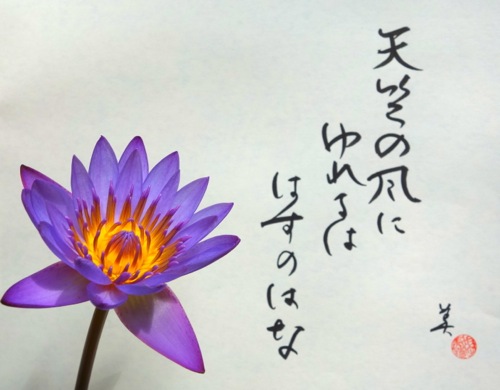 天竺の風に
ゆれるは
はすのはな
英